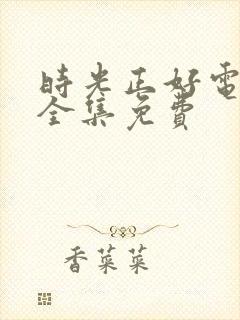 時光正好電
全集免費
香菜菜